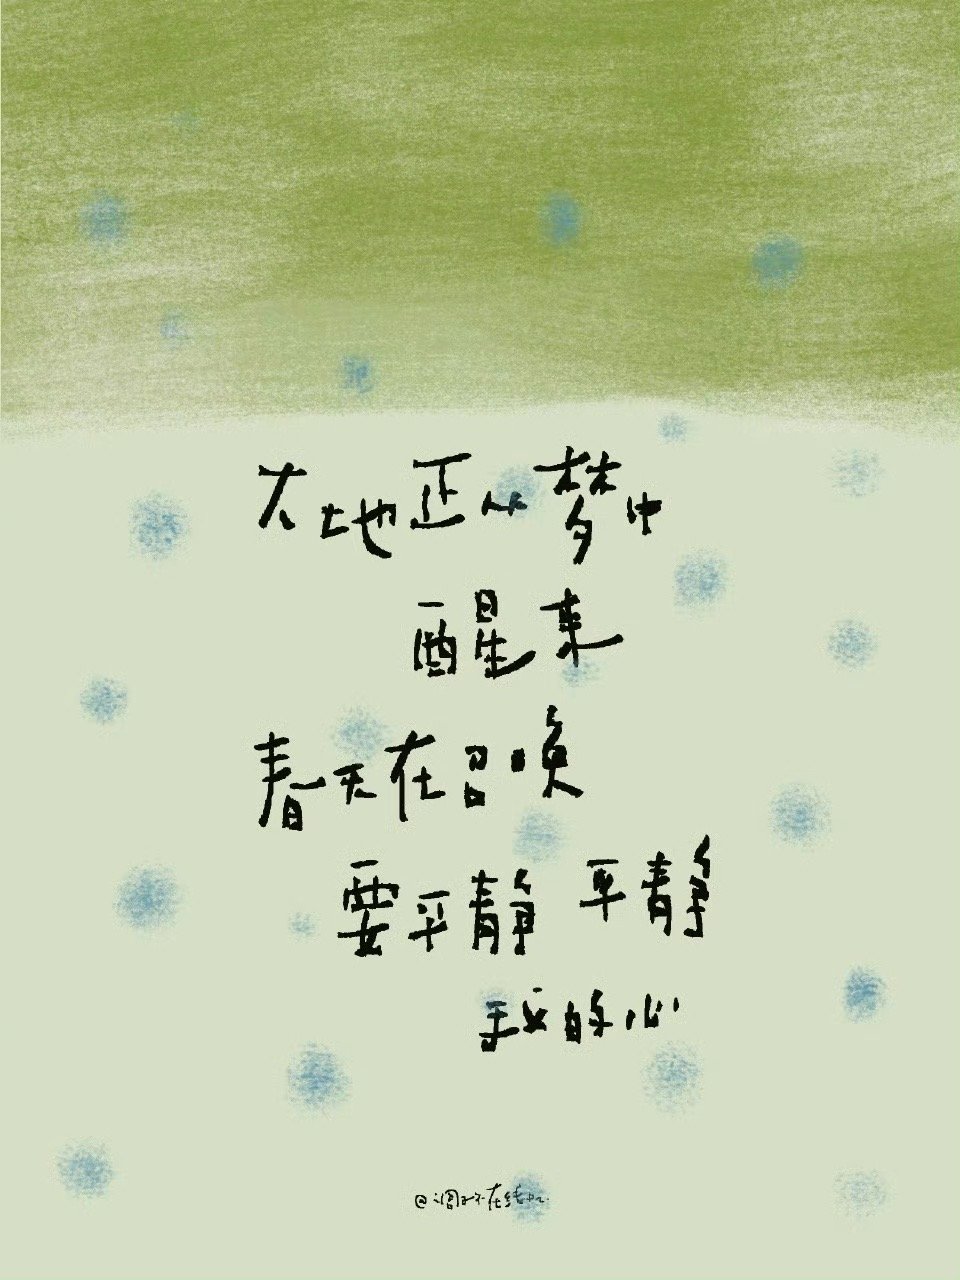 大地正从梦中
醒来
春天在召唤
要平静 平静
我的心